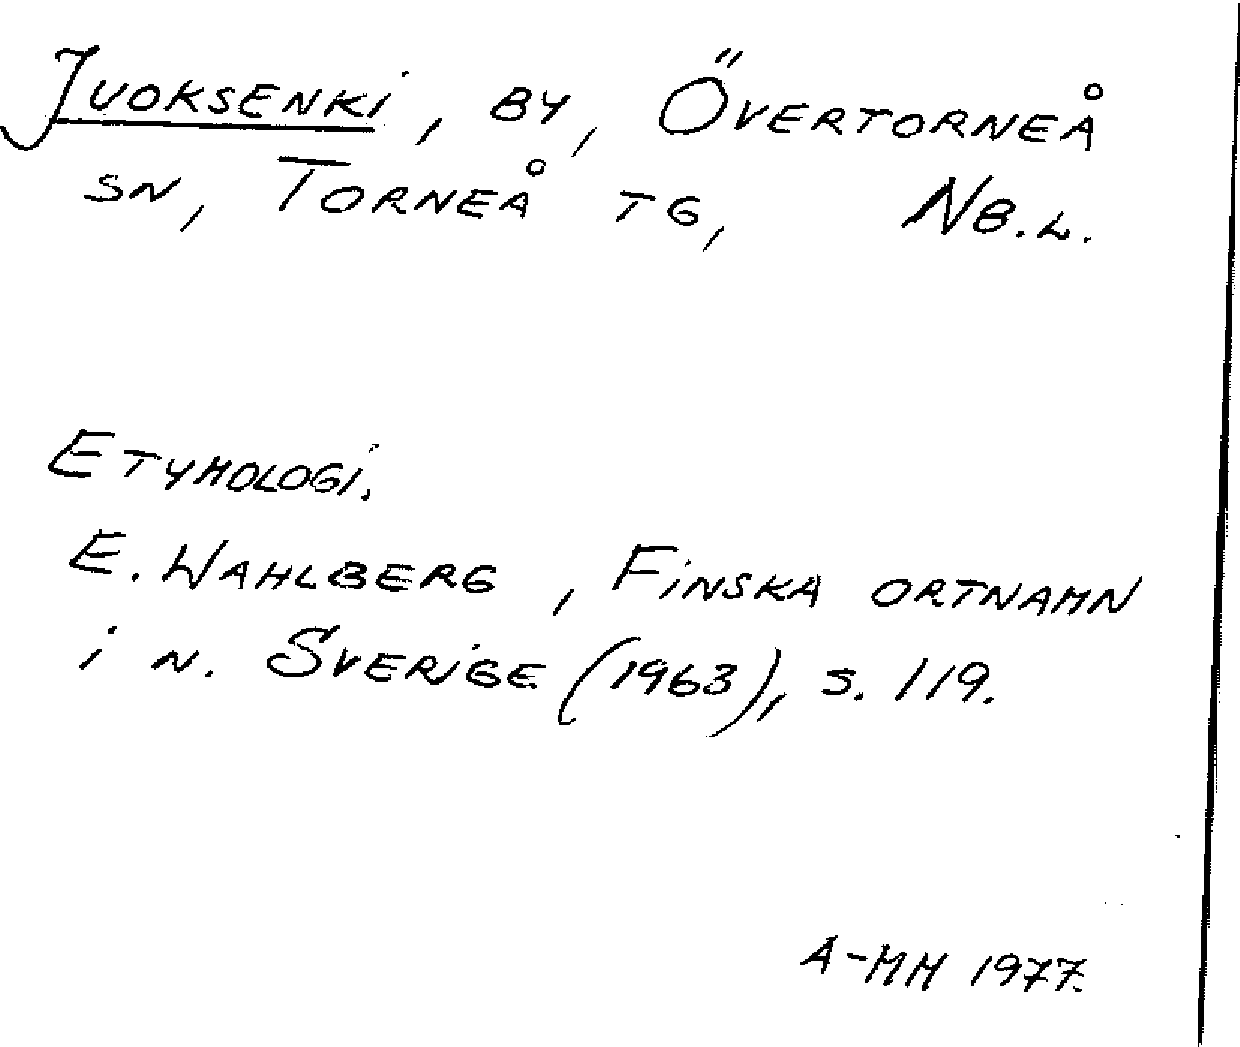 Juoksenki, by, Övertorneå
sn, Torneå tg, Nb.l.
Etymologi.
E. Wahlberg, Finska ortnamn
i n. Sverige (1963), s. 119.
A-MH 1977.